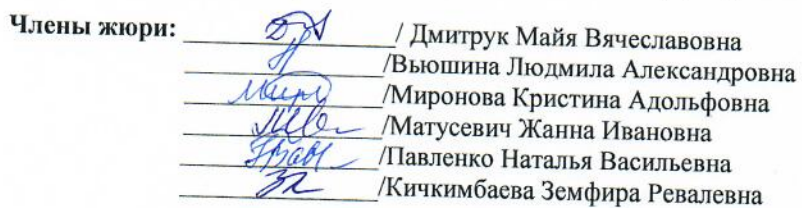 Члены жюри: ____________________/ Дмитрук Майя Вячеславовна
____________________/Вьюшина Людмила Александровна
____________________/Миронова Кристина Адольфовна
____________________/Матусевич Жанна Ивановна
____________________/Павленко Наталья Васильевна
____________________/Кичкимбаева Земфира Ревалевна